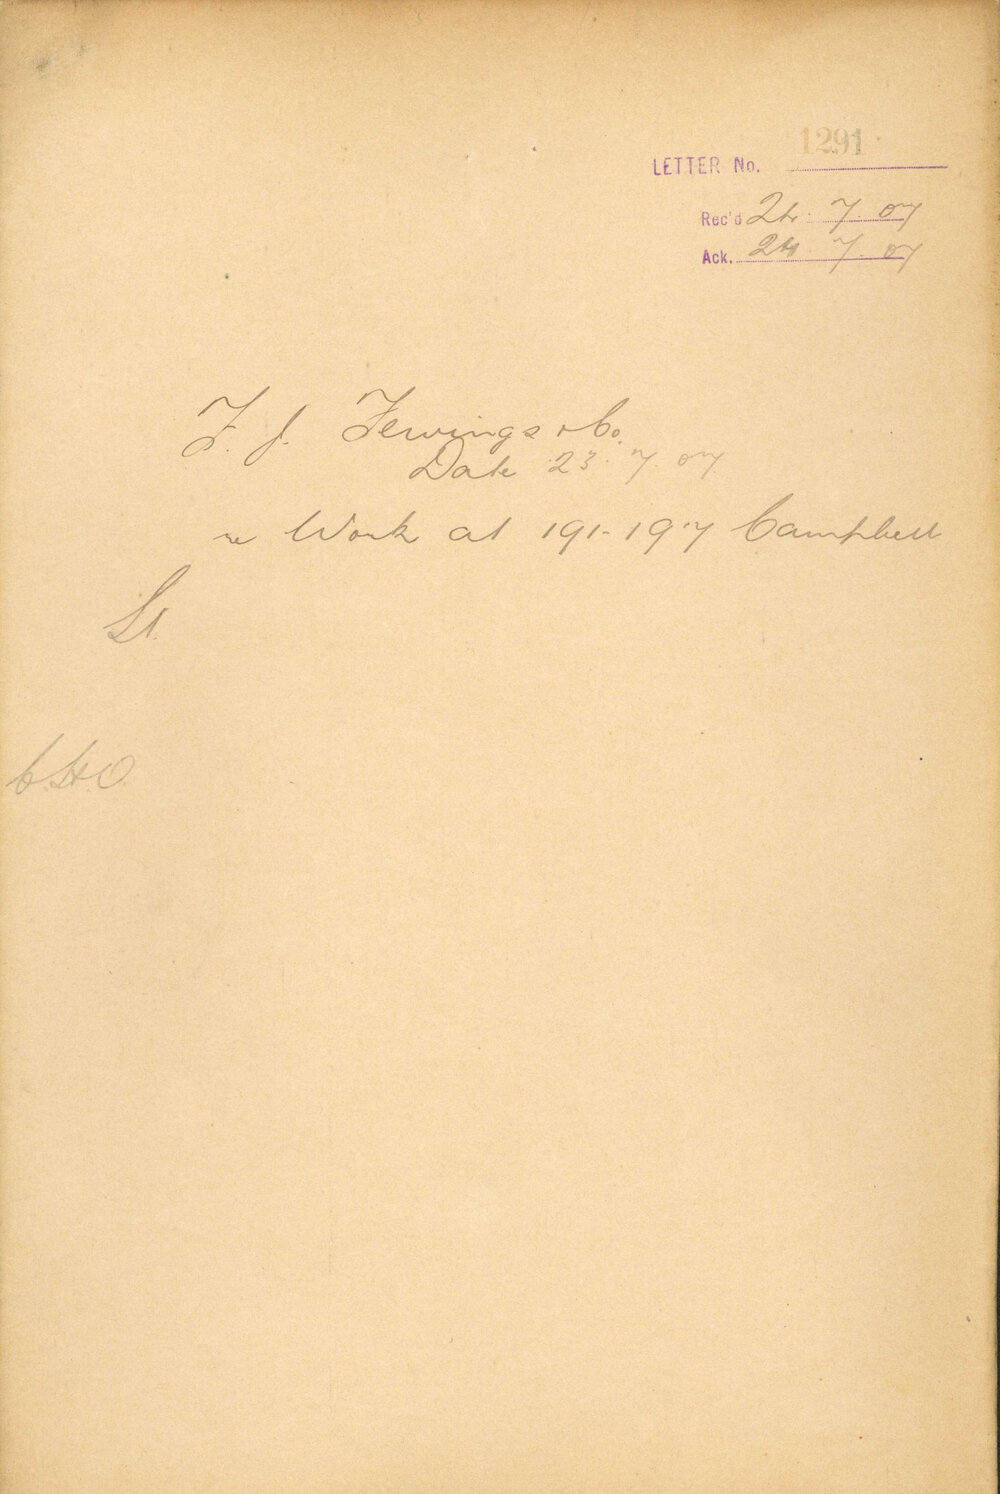 LETTER No. 1291
Rec'd 24. 7. 07
Ack. 24. 7. 07
F. J. Fewings & Co.
Date 23. 7. 07.
re Work at 191-197 Campbell
St.
C.H.O.